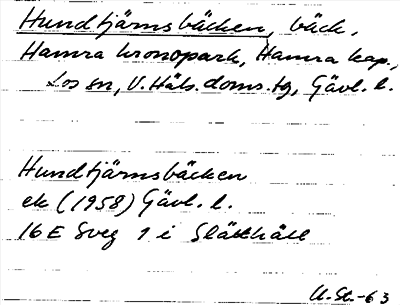 Hundtjärnsbäcken, bäck,
Hamra kronopark, Hamra kap.,
Los sn, V. Häls. doms. tg, Gävl. l.
Hundtjärnsbäcken
ek (1958) Gävl. l.
16E Sveg 1 i Slätthäll
U. St. -63